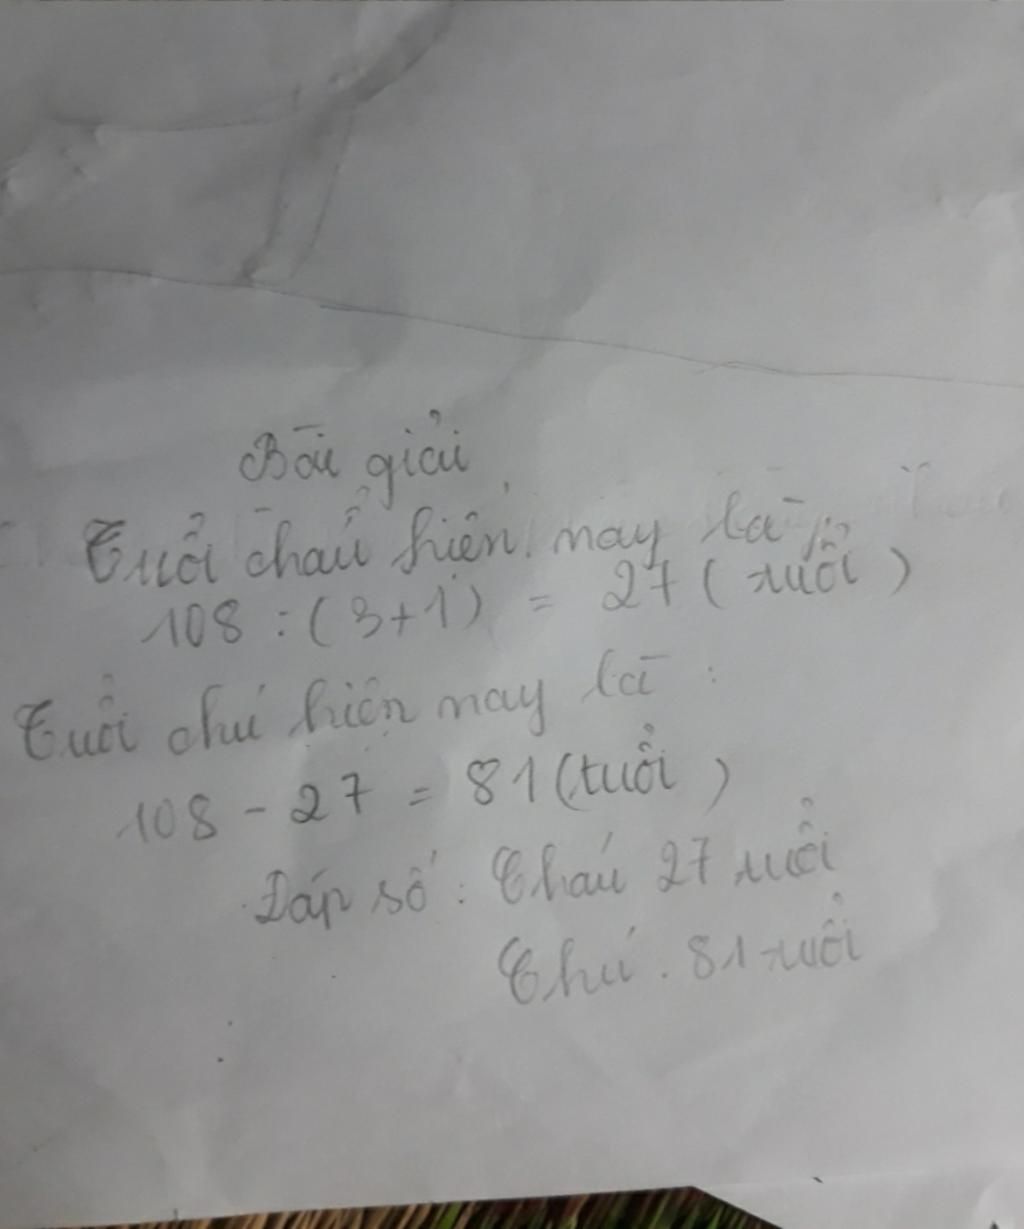 Bài giải
Tuổi cháu hiện nay là :
108 : (3+1) = 27 (tuổi)
Tuổi chú hiện nay là :
108 - 27 = 81 (tuổi)
Đáp số : Cháu 27 tuổi
Chú : 81 tuổi